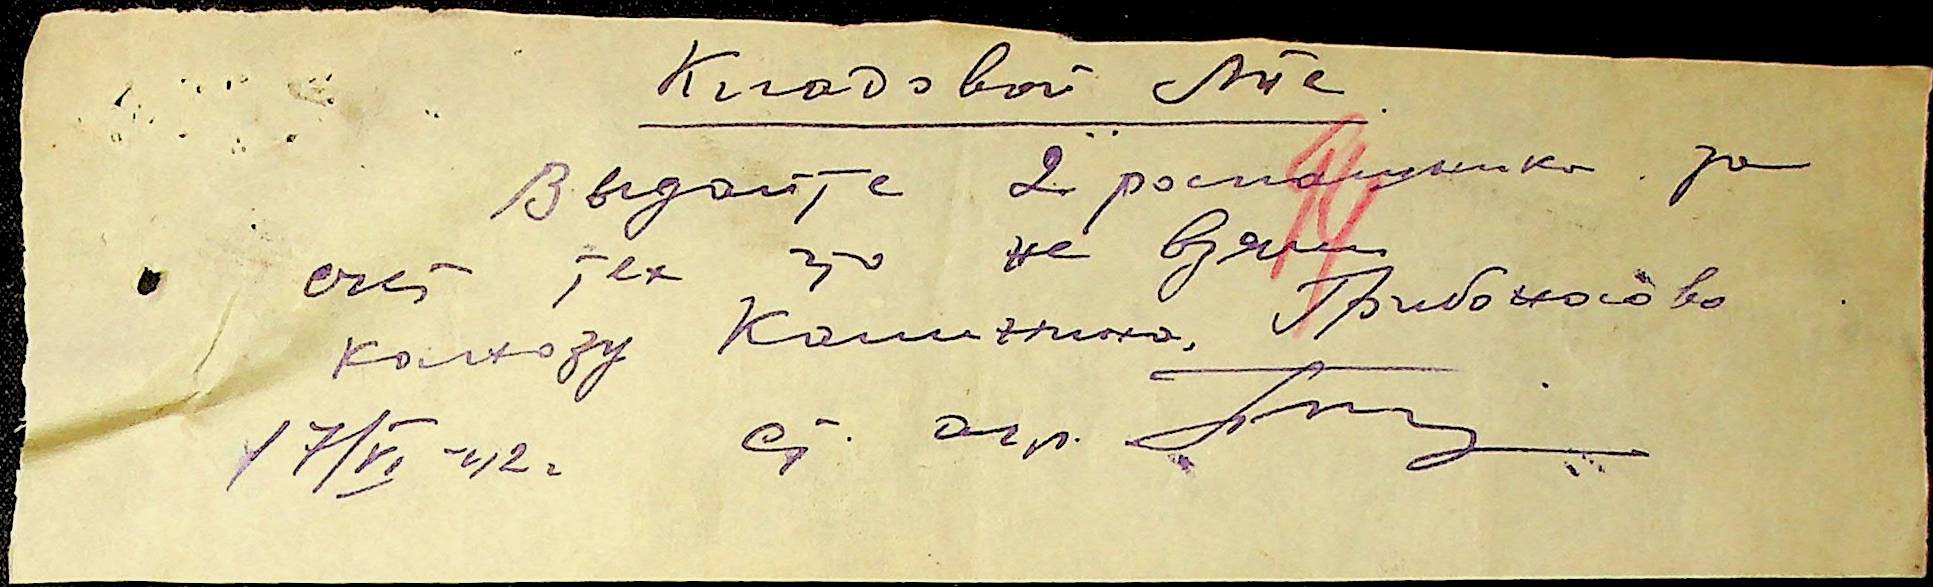 Кладовой Мтс
Выдайте 2 распашника за
счет тех что не взяли
колхозу Калинина, Грибоносово
17/VI -42г ст. агр.